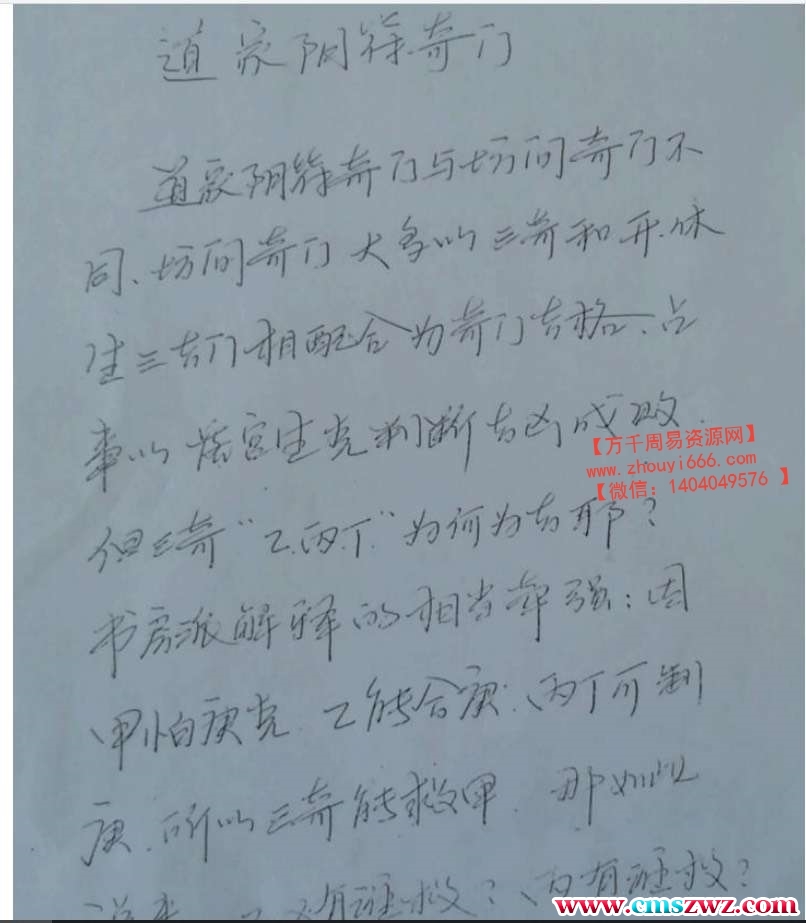 道家阴符奇门
道家阴符奇门与坊间奇门不
同、坊间奇门大多以三奇和开.休
生三吉门相配合为奇门吉格、占
事以落宫生克判断吉凶成败.
但三奇“乙.丙.丁.”为何为吉耶?
书房派解释的相当牵强:因
甲怕庚克.乙能合庚.丙丁可制
庚.所以三奇能救甲.那如此
说来 乙 有谁救?丙有谁救?
【万千周易资源网】
www.zhouyi666.com
【微信：1404049576 】
www.cmszwz.com